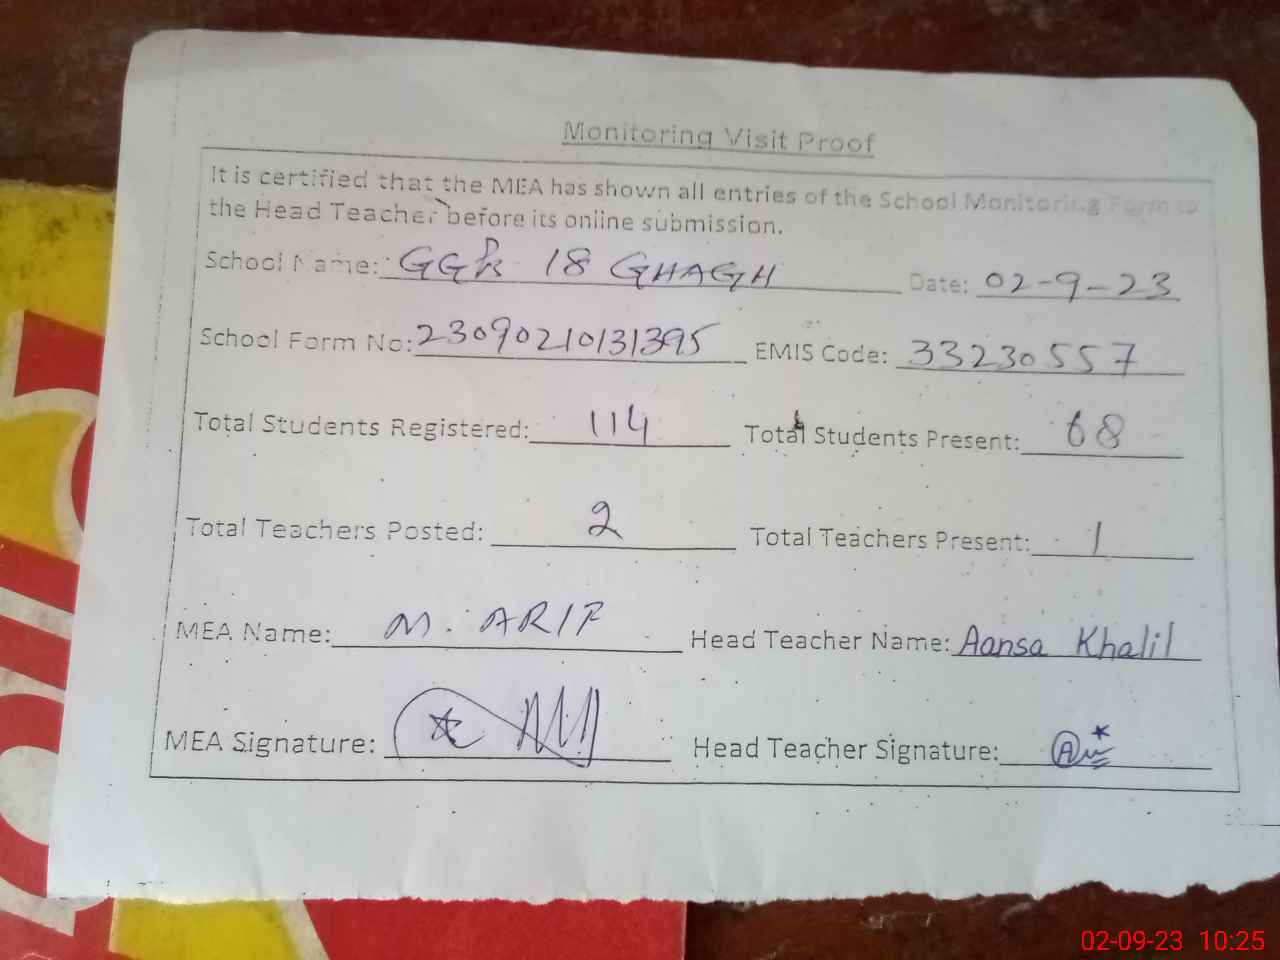 Monitoring Visit Proof
It is certified that the MEA has shown all entries of the School Monitoring Form to
the Head Teacher before its online submission.
School Name: 18 GHAGH Date: 02-9-23
School Form No: 23090210131395 EMIS Code: 33230557
Total Students Registered: 114 Total Students Present: 68
Total Teachers Posted: 2 Total Teachers Present: 1
MEA Name: M. ARIF Head Teacher Name: Aansa Khalil
MEA Signature: Head Teacher Signature:
02-09-23 10:25